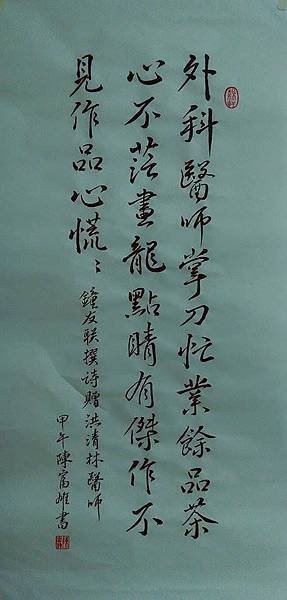 外科醫師掌刀忙業餘品茶
心不茫畫龍點睛有傑作不
見作品心慌慌
鐘友联撰诗赠洪清林醫師
甲午陳富雄書